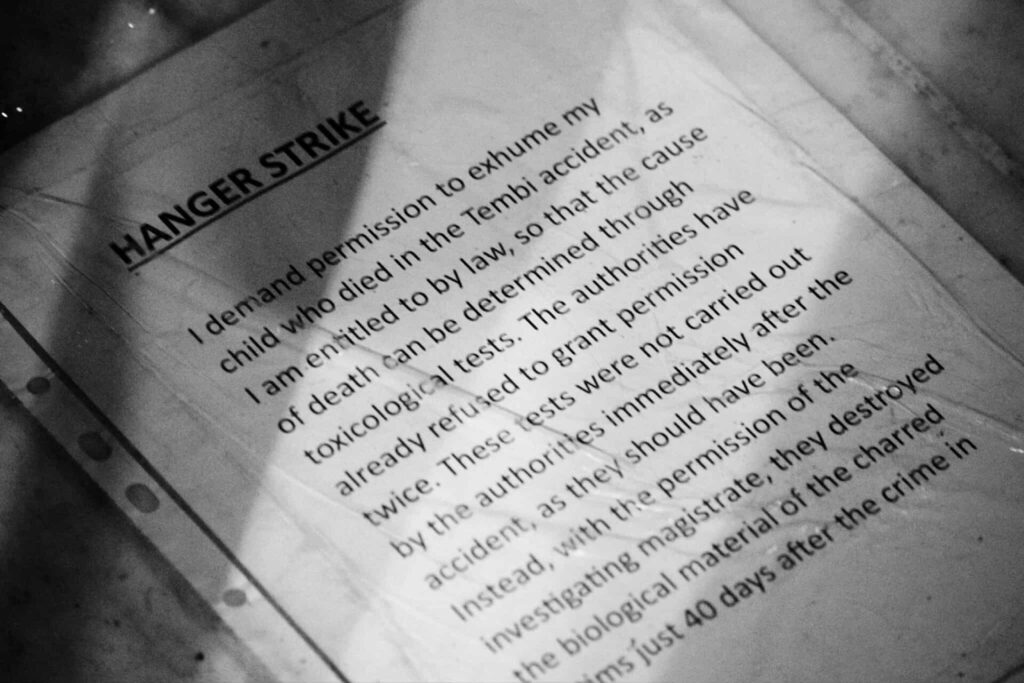 HANGER STRIKE
I demand permission to exhume my
child who died in the Tembi accident, as
I am entitled to by law, so that the cause
of death can be determined through
toxicological tests. The authorities have
already refused to grant permission
twice. These tests were not carried out
by the authorities immediately after the
accident, as they should have been.
Instead, with the permission of the
investigating magistrate, they destroyed
the biological material of the charred
just 40 days after the crime in